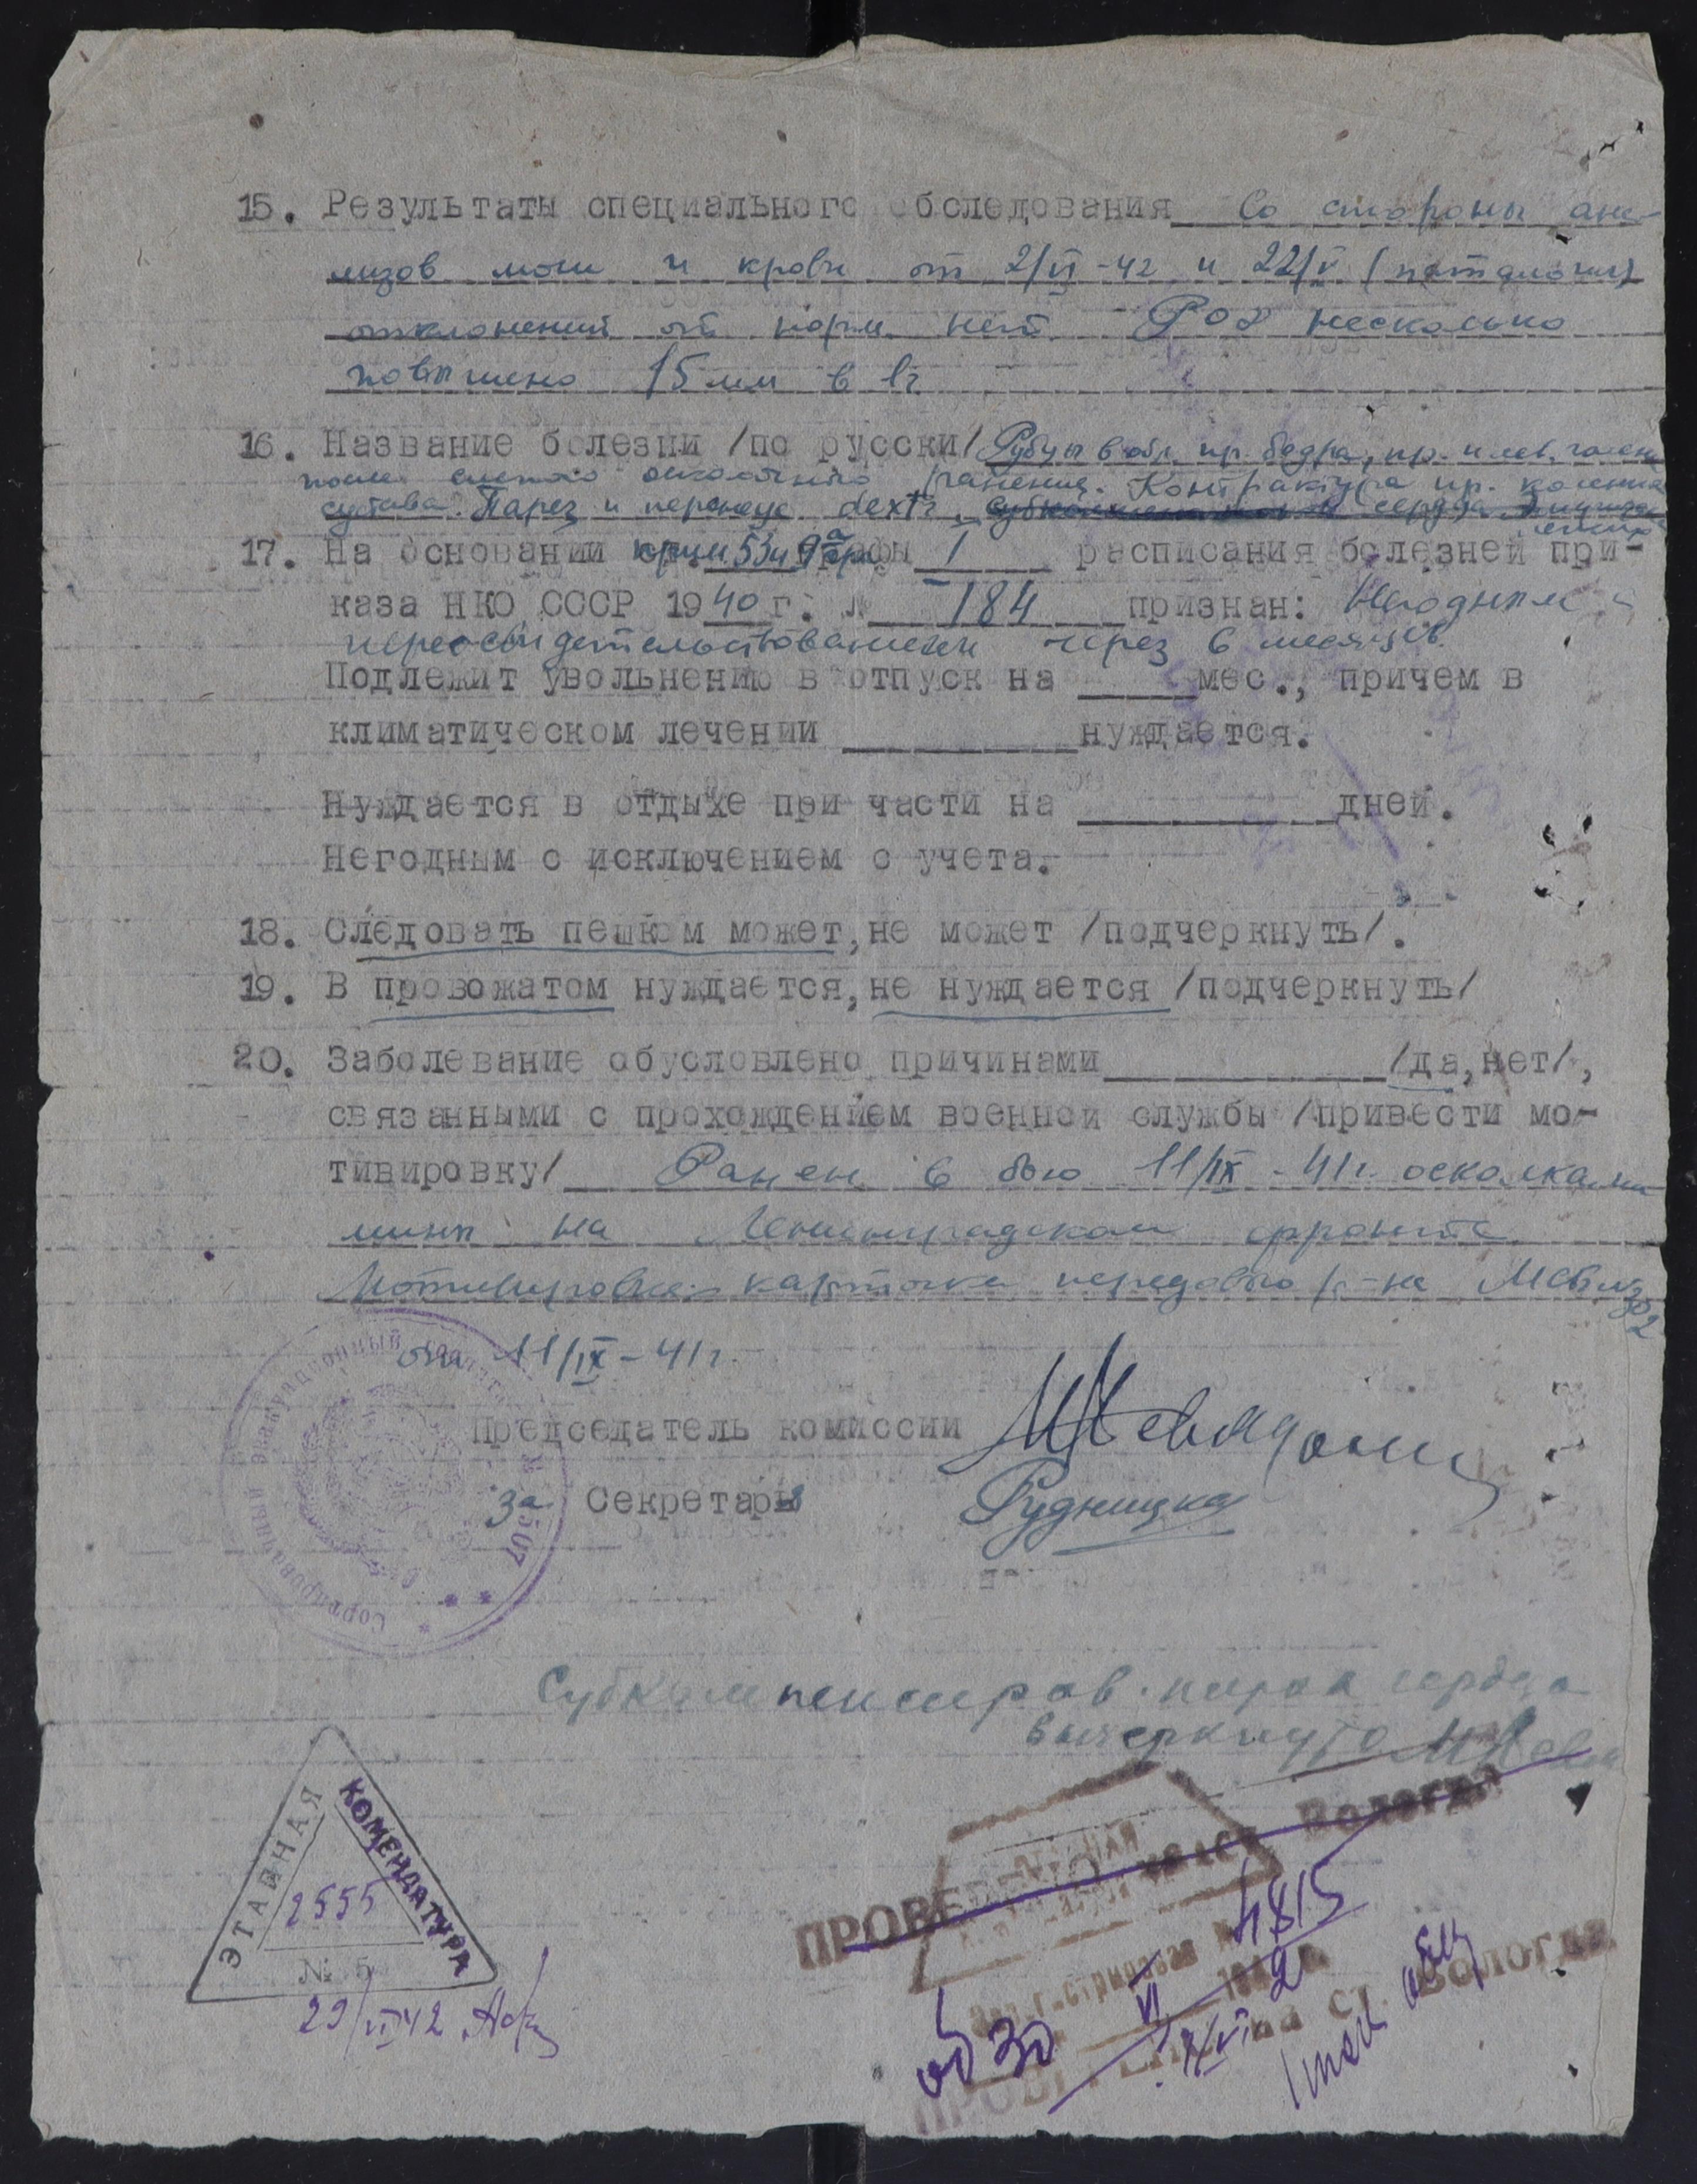 15. Результаты специального обследования Со стороны ана-
лизов мочи и крови от 2/VI-42 и 22/V (патологии)
отклонений от норм нет РОЭ несколько
повышено 15 мм в 1ч
16. Название болезни /по русски/ Рубцы в обл. пр. бедра, пр. и лев. голени
после слепого осколочного ранения. Контрактура пр. коленн
сустава. Парез n peroneus dextr. сердца
17. На основании 53 и 9а графы I расписания болезней при-
каза НКО СССР 1940 г. № 184 признан: Негодным с
переосвидетельствованием через 6 месяцев.
Подлежит увольнению в отпуск на ____ мес., причем в
климатическом лечении ____ нуждается.
Нуждается в отдыхе при части на ____ дней.
Негодным с исключением с учета.
18. Следовать пешком может, не может /подчеркнуть/.
19. В провожатом нуждается, не нуждается /подчеркнуть/
20. Заболевание обусловлено причинами ____ /да, нет/,
связанными с прохождением военной службы /привести мо-
тивировку/ Ранен в бою 11/IX-41г. осколками
мины на Ленинградском фронте
Мотивировка: карточка передового р-на МСБ №392
от 11/IX-41г.
Председатель комиссии
За Секретаря Рудницка
Сортировочный Эвакуационный Госпиталь № 1507
Субкомпенсиров. порок сердца
вычеркнуто
ЭТАПНАЯ КОМЕНДАТУРА
2555
№ 5
29/VI 42
ПРОВЕРЕНО на ст. Вологда
4815
об 30 VI
на ст. Вологда